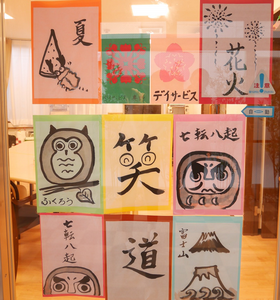 夏
デイサービス
花火
ふくろう
笑
七転八起
七転
八起
道
富士山